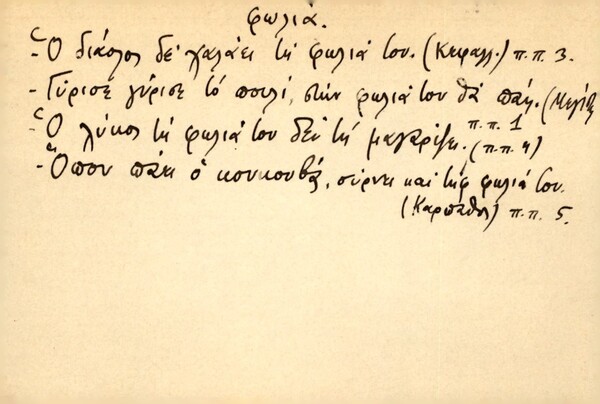 φωλιά.
- Ὁ διάολος δὲ χαλάει τὴ φωλιά του. (Κεφαλλ.) π.π. 3.
- Γύρισε γύρισε τὸ πουλί, στὴν φωλιά του θὰ πάῃ.
π.π. 1
- Ὁ λύκος τὴ φωλιά του δὲν τὴ μαγαρίζει. (π.π. 4)
- Ὅπου πάει ὁ κουκουβᾶς, σύρνει καὶ τὴφ φωλιά του.
(Κάρπαθος) π.π. 5.